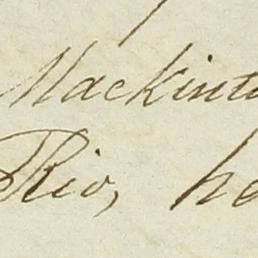 Mackint
Rio, he